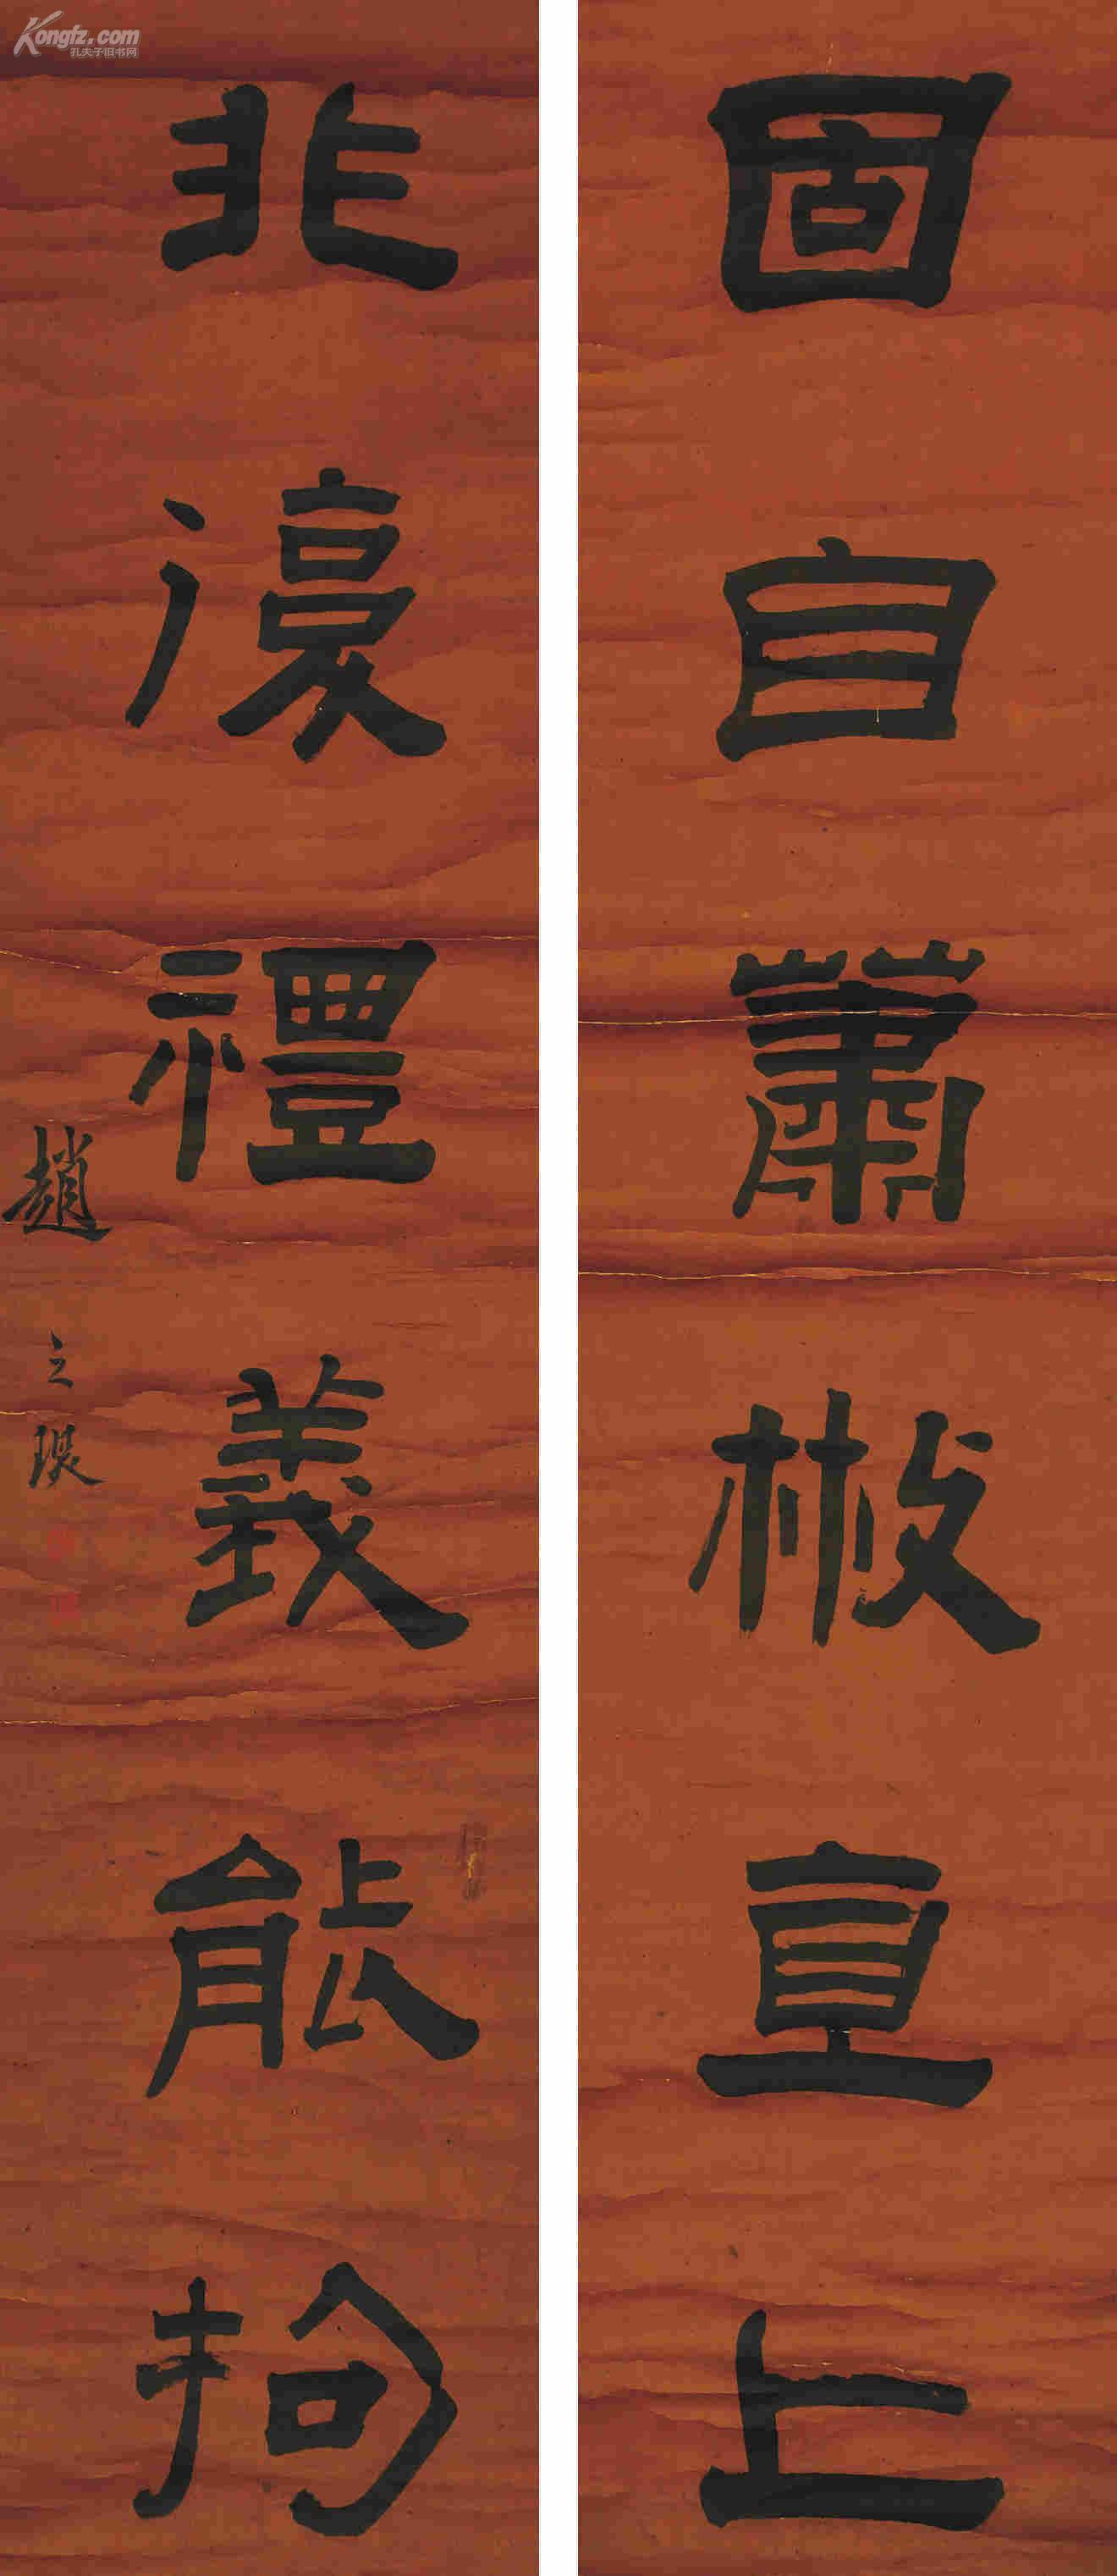 固自蕭㪔直上
非復禮義能拘
趙之琛
Kongfz.com
孔夫子旧书网